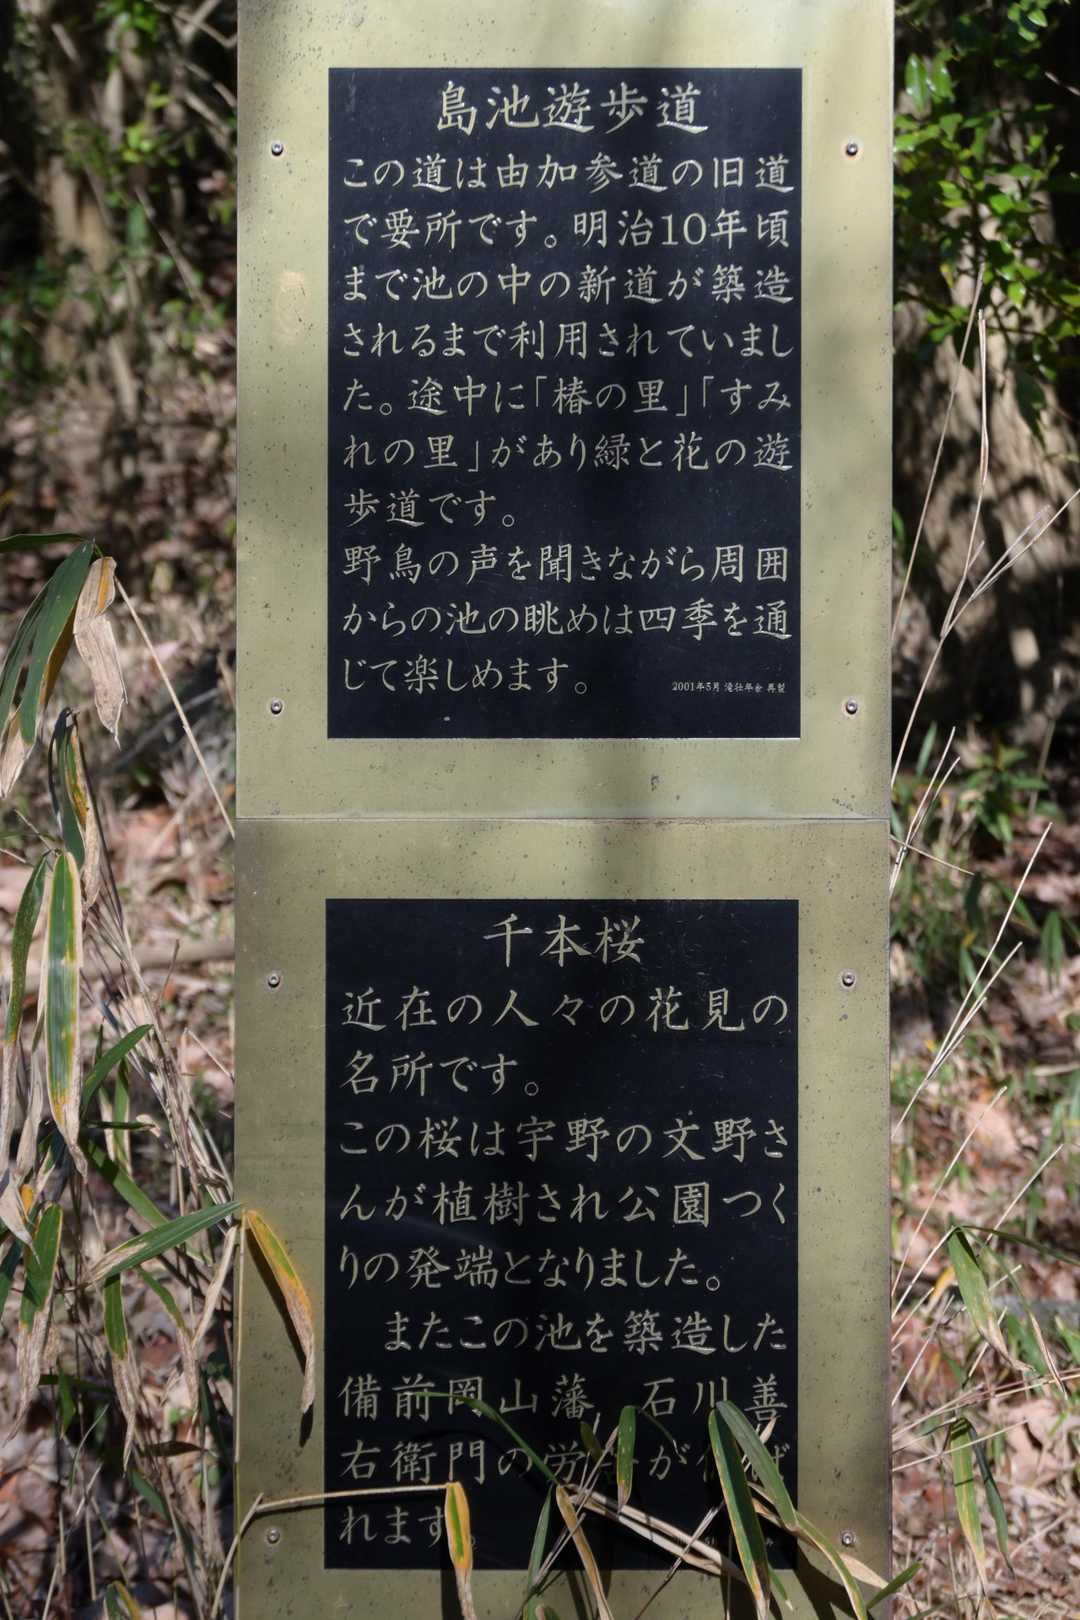 島池遊歩道
この道は由加参道の旧道
で要所です。明治10年頃
まで池の中の新道が築造
されるまで利用されていまし
た。途中に「椿の里」「すみ
れの里」があり緑と花の遊
歩道です。
野鳥の声を聞きながら周囲
からの池の眺めは四季を通
じて楽しめます。
2001年5月 滝壮年会 再製
千本桜
近在の人々の花見の
名所です。
この桜は宇野の文野さ
んが植樹され公園つく
りの発端となりました。
またこの池を築造した
備前岡山藩 石川善
右衛門の労が
れます。